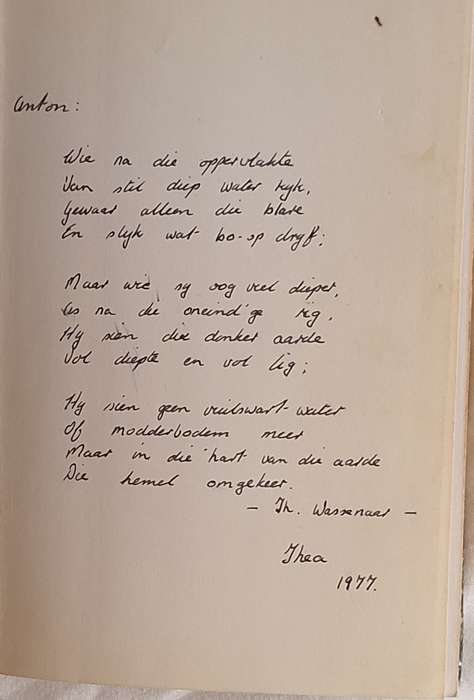 Anton:
Wie na die oppervlakte
Van stil diep water kyk,
Gewaar alleen die blare
En slyk wat bo-op dryf;
Maar wie sy oog veel dieper,
As na die oneind'ge rig,
Hy sien die donker aarde
Vol diepte en vol lig;
Hy sien geen vuilswart water
Of modderbodem meer
Maar in die hart van die aarde
Die hemel omgekeer.
- Th. Wassenaar -
Thea
1977.